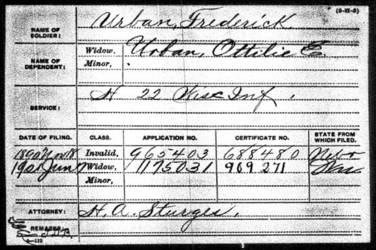 (3-II-3)
NAME OF SOLDIER: Urban, Frederick
NAME OF DEPENDENT: Widow, Urban, Ottilie E.
Minor,
SERVICE: H 22 Wisc Inf.
DATE OF FILING. CLASS. APPLICATION NO. CERTIFICATE NO. STATE FROM WHICH FILED.
1890 Nov Invalid, 965403 688480 Nebr
June Widow, 1175031 969.271
Minor,
ATTORNEY: H. A. Sturges,
REMARKS: